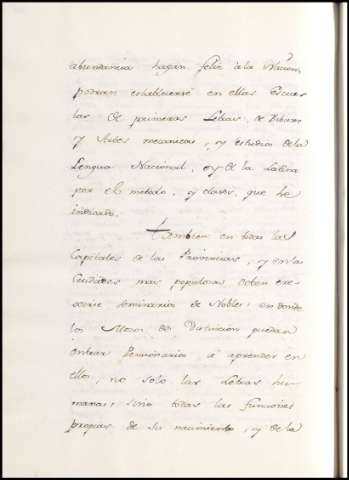 abundancia hagan feliz à la Nacion,
podran establecerse en ellas Escue-
las de primeras Letras, de Dibuxo
y Artes mecanicas, y estudios de la
Lengua Nacional, y de la Latina
por el metodo, y clases, que he
indicado.
Tambien en todas las
Capitales de las Provincias, y en las
Ciudades mas populosas deben cre-
arse Seminarios de Nobles; en donde
los Mozos de Distincion puedan
entrar Seminarios à aprender en
ellos, no solo las Letras hu-
manas, sino todas las funciones
propias de su nacimiento, y de la